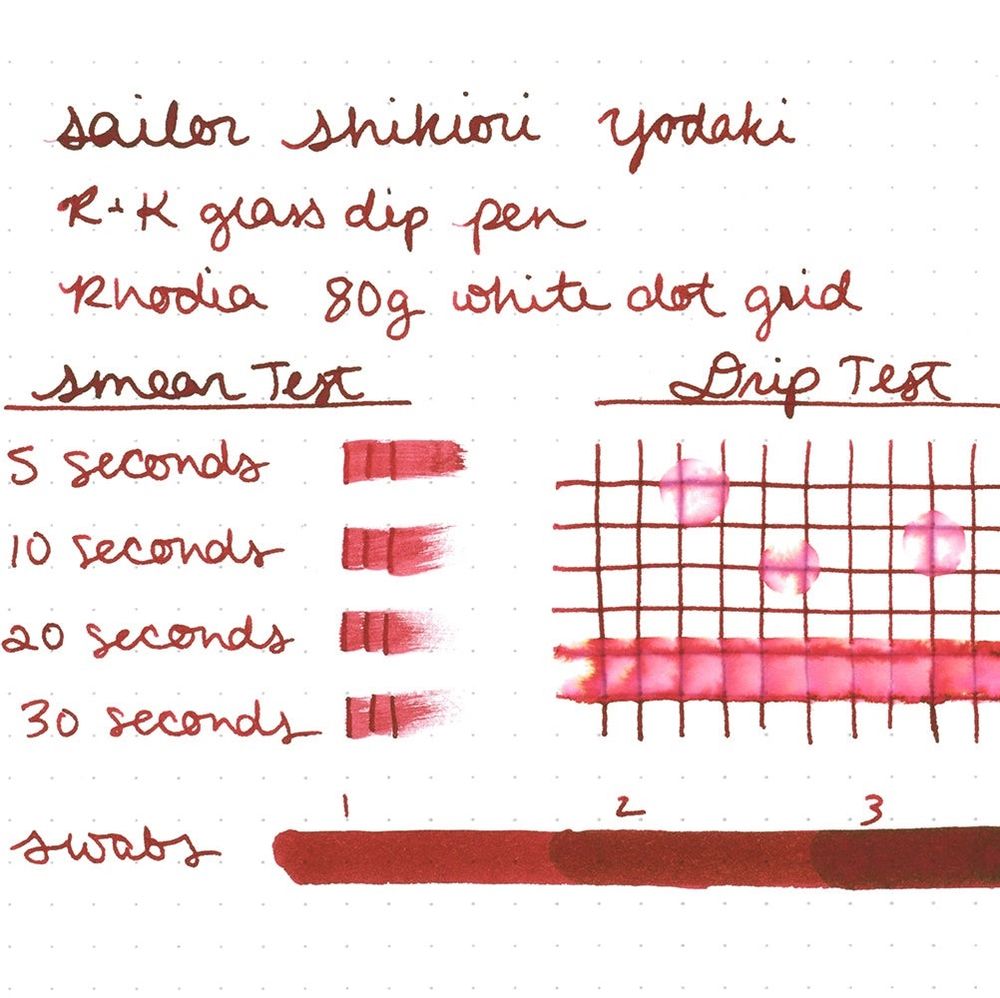 Sailor Shikiori Yodaki
R+K glass dip pen
Rhodia 80g white dot grid
Smear Test
Drip Test
5 seconds
10 seconds
20 seconds
30 seconds
1 2 3
swabs